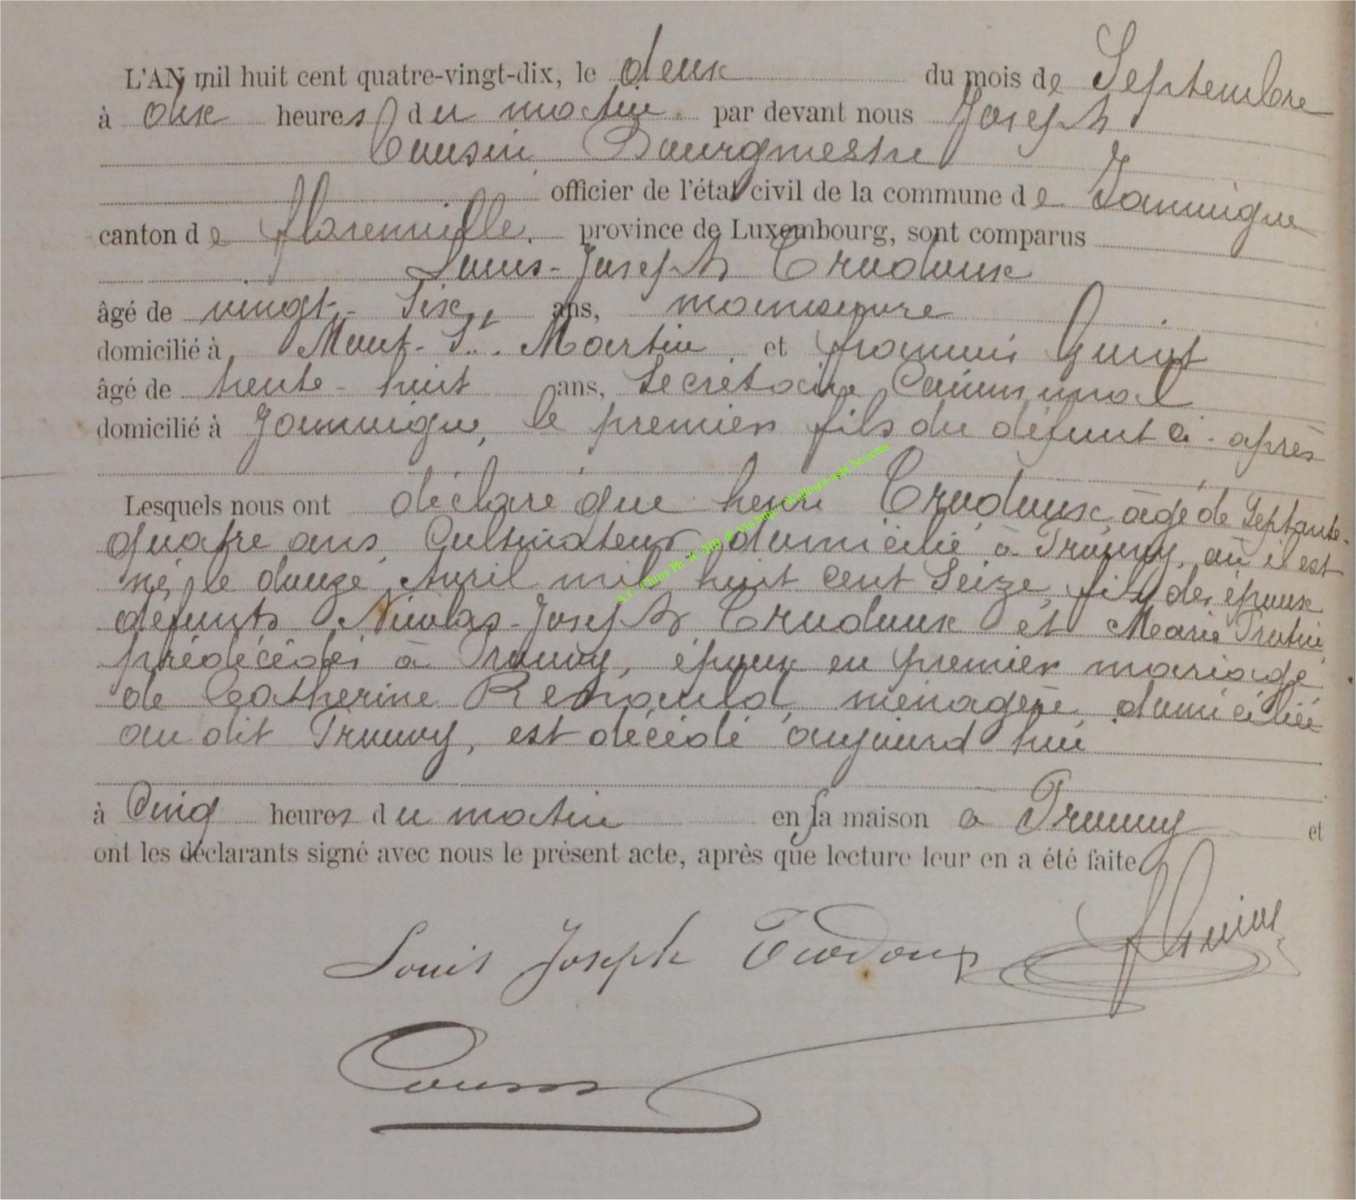 L'AN mil huit cent quatre-vingt-dix, le deux du mois de Septembre
à onze heures du matin par devant nous Joseph
Cousin Bourgmestre
officier de l'état civil de la commune de Jamoigne
canton de Florenville, province de Luxembourg, sont comparus
Louis-Joseph Trodoux
âgé de vingt-six, ans, manoeuvre
domicilié à Mont-St. Martin et françois Guiot
âgé de trente-huit ans, Secrétaire Communal
domicilié à Jamoigne, le premier fils du défunt ci-après
Lesquels nous ont déclaré que henri Trodoux, âgé de Septante-
quatre ans, Cultivateur, domicilié à Prouvy, où il est
né, le douze Avril mil huit cent Seize, fils des époux
défunts Nicolas-Joseph Trodoux et Marie
prédécédés à Prouvy, époux en premier mariage
de Catherine Renauld, ménagère, domiciliée
au dit Prouvy, est décédé aujourd'hui
à Cinq heures du matin en sa maison à Prouvy et
ont les déclarants signé avec nous le présent acte, après que lecture leur en a été faite
Louis Joseph Trodoux Guiot
Cousin